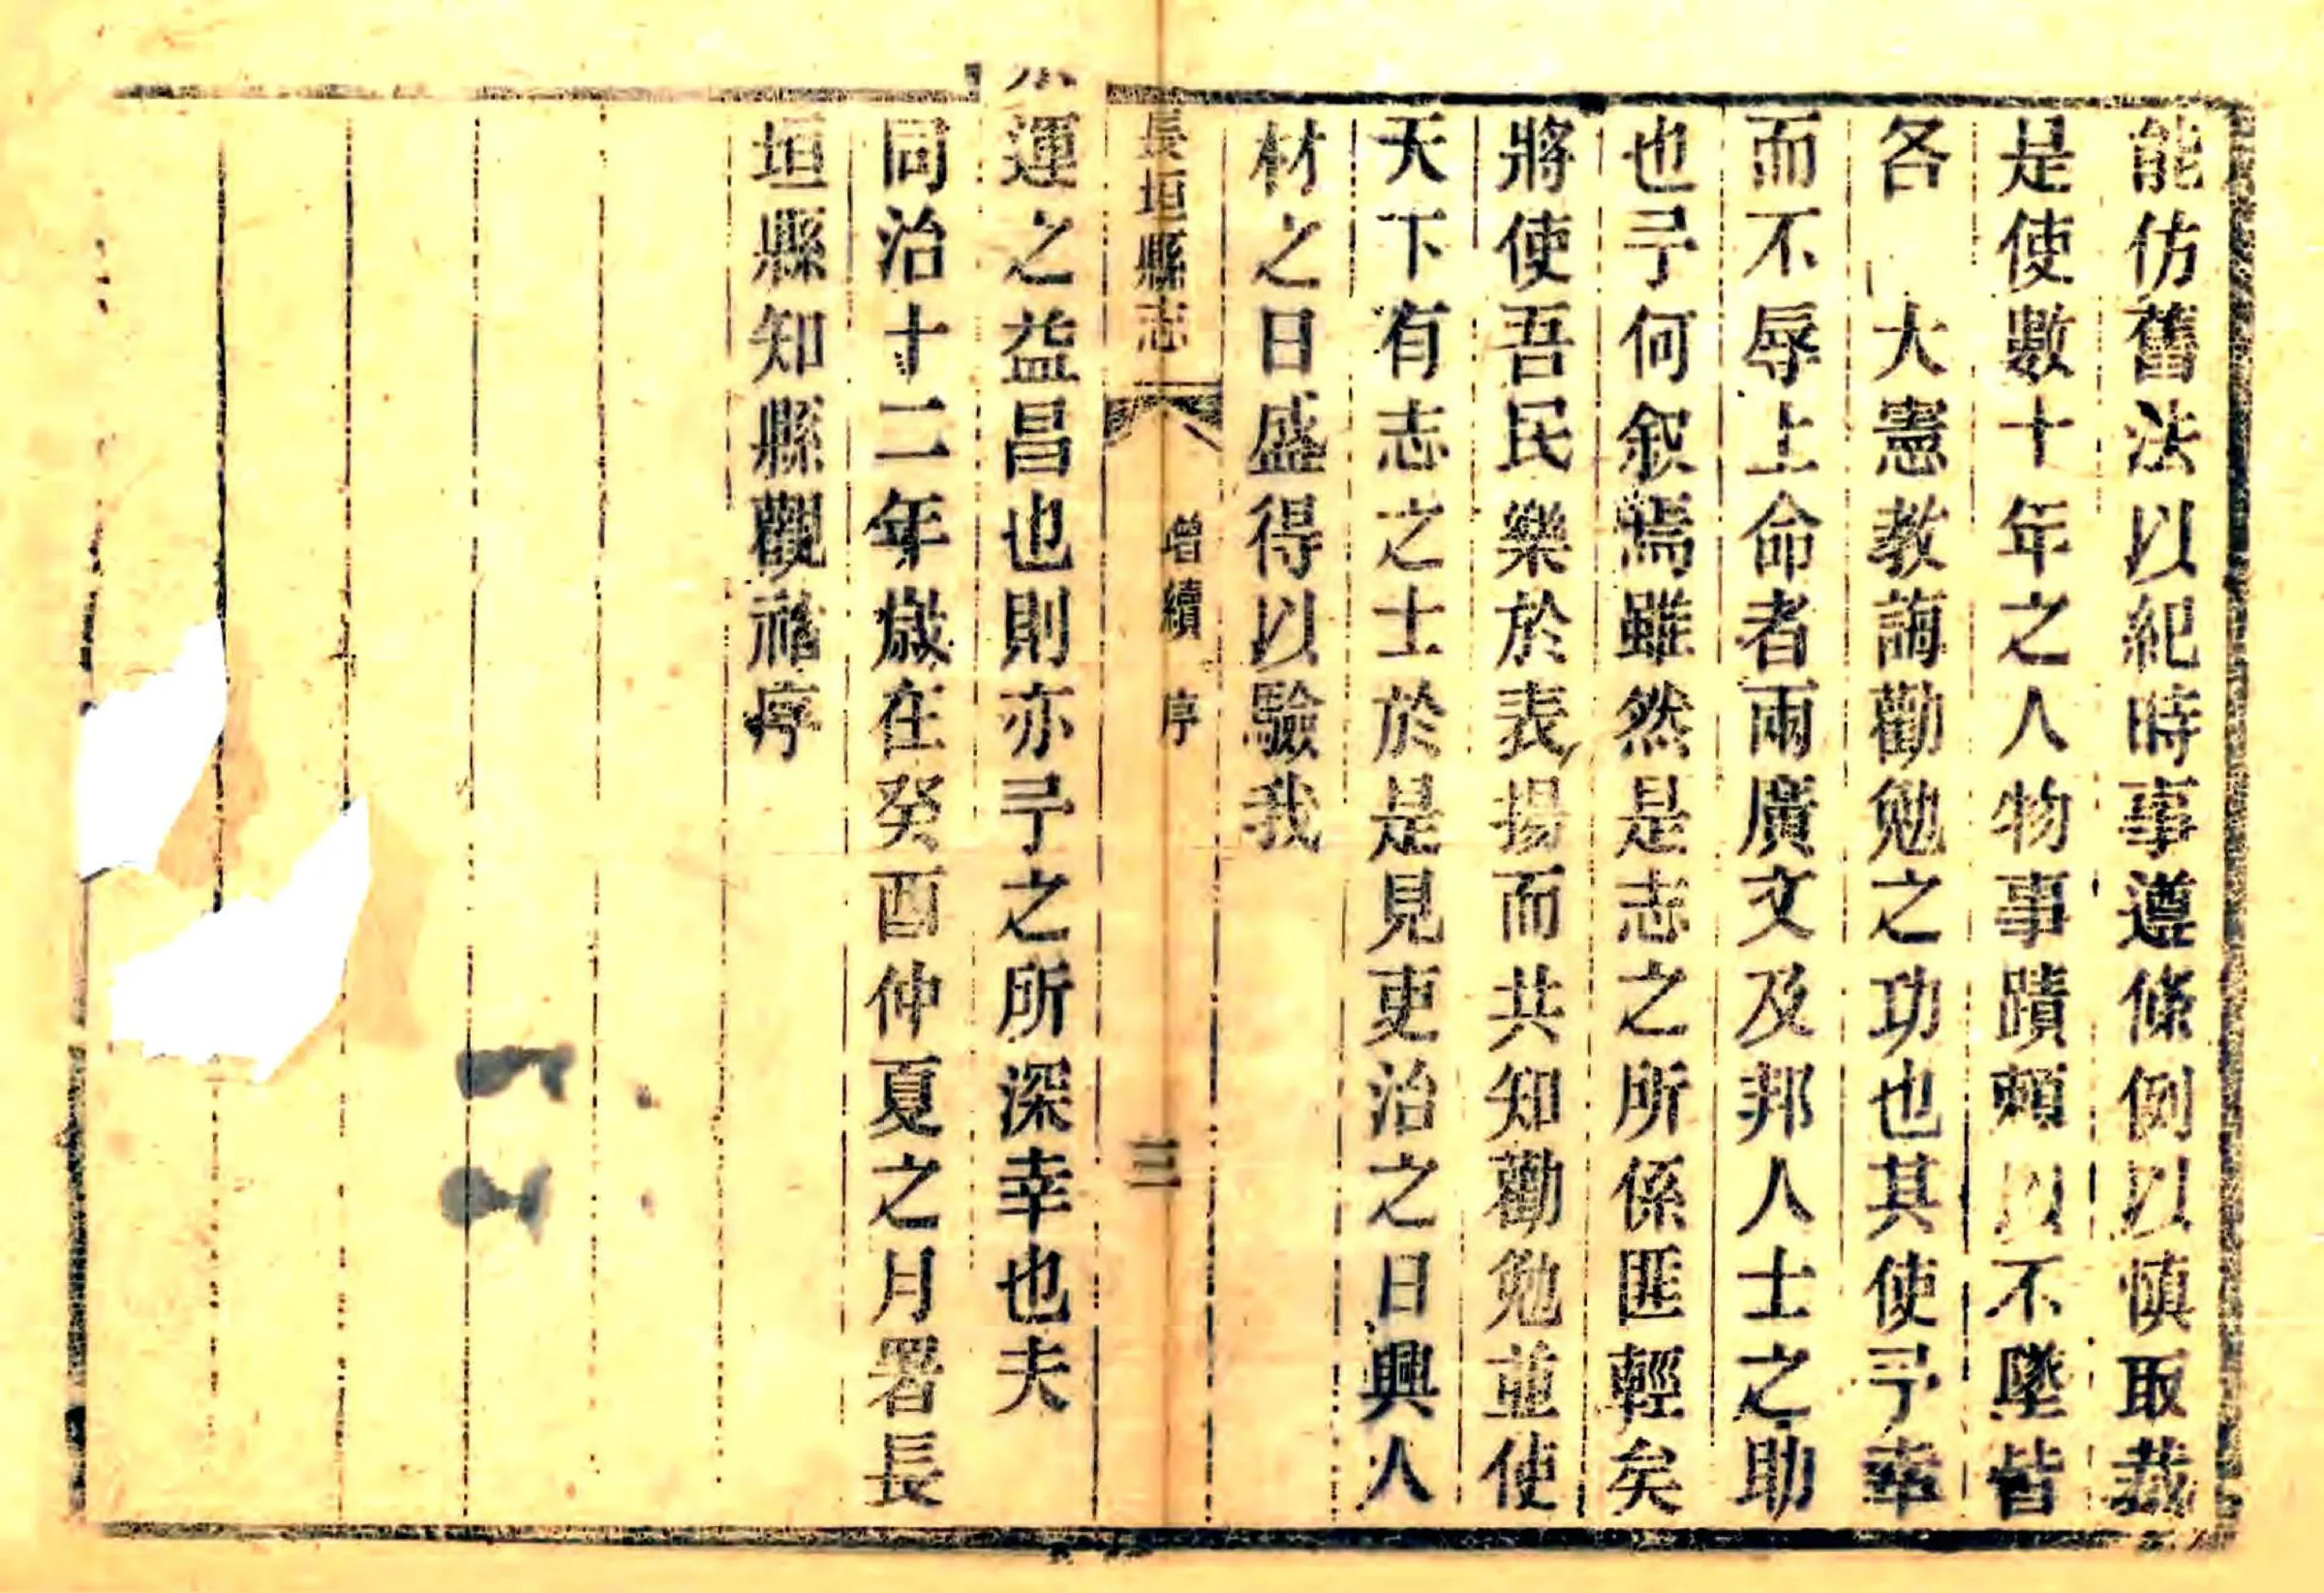 能仿舊法以紀時事遵條例以慎取裁
是使數十年之人物事蹟頼以不墜皆
各　大憲教誨勸勉之功也其使予幸
而不辱上命者兩廣文及邦人士之助
也予何叙焉雖然是志之所係匪輕矣
將使吾民樂於表揚而共知勸勉並使
天下有志之士於是見吏治之日興人
材之日盛得以驗我
長垣縣志　增續　序　三
運之益昌也則亦予之所深幸也夫
同治十二年歲在癸酉仲夏之月署長
垣縣知縣觀祜序